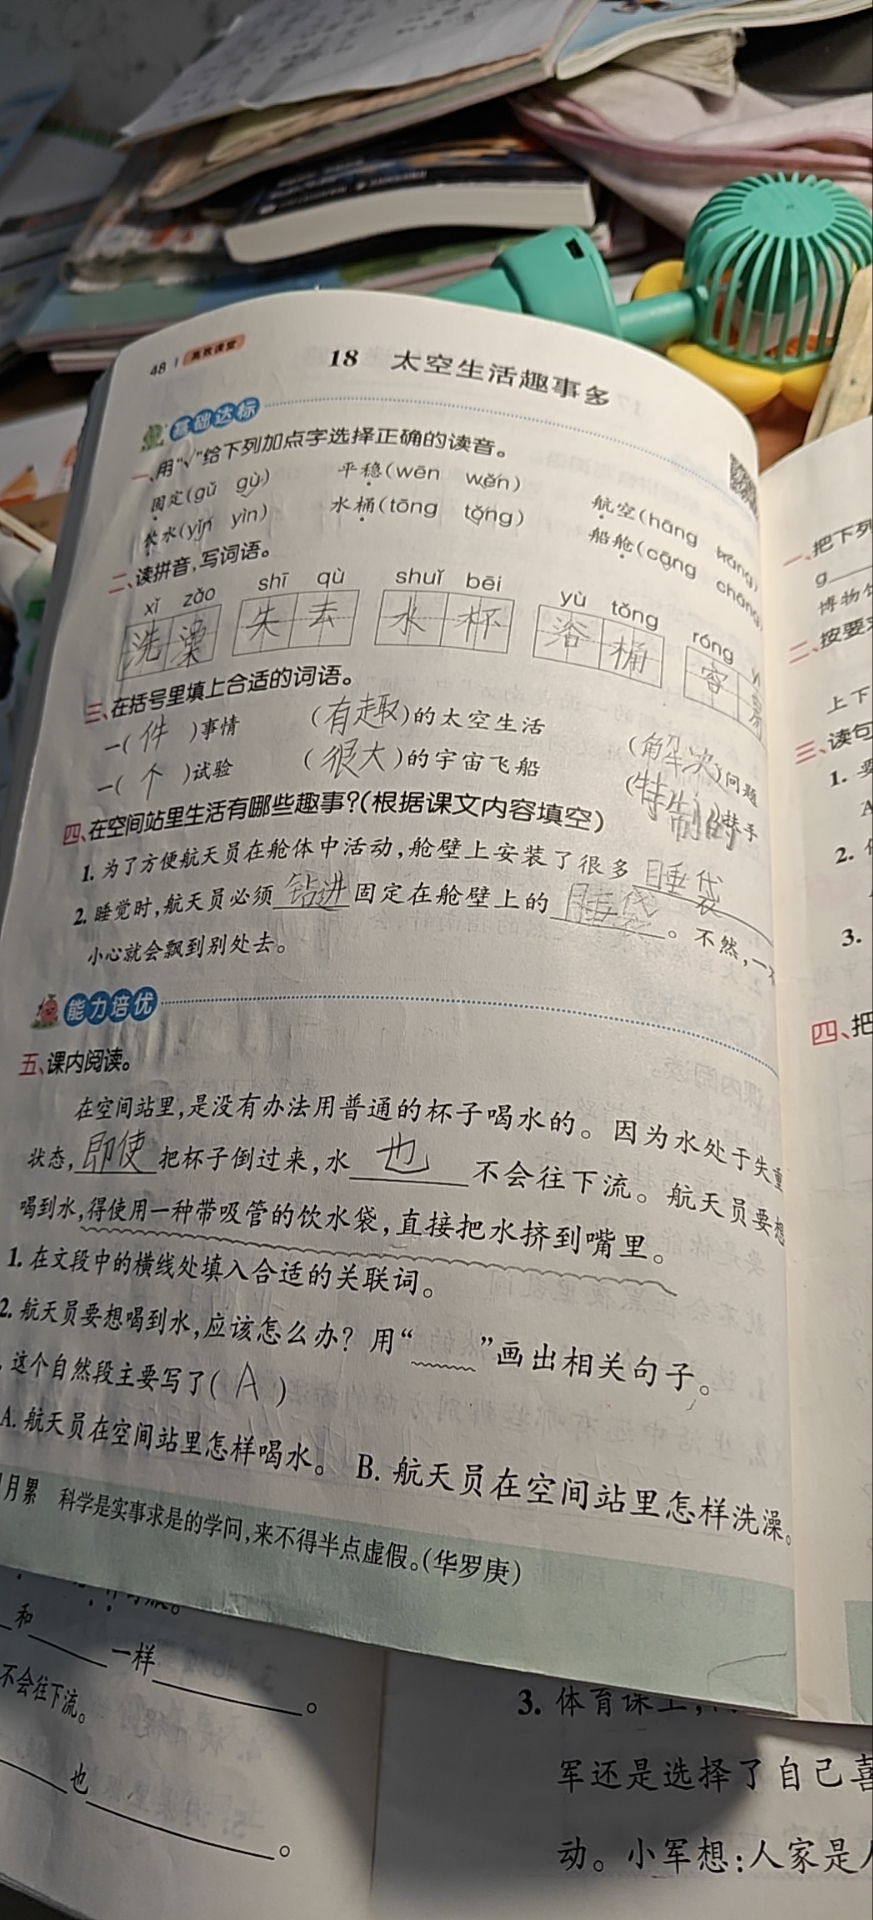 48 高效课堂
18 太空生活趣事多
基础达标
一、用“√”给下列加点字选择正确的读音。
固定(gǔ gù) 平稳(wēn wěn) 航空(háng kāng)
饮水(yǐn yìn) 水桶(tōng tǒng) 船舱(cāng chāng)
二、读拼音,写词语。
xǐ zǎo shī qù shuǐ bēi yù tǒng róng
洗 澡 失 去 水 杯 浴 桶 容 易
三、在括号里填上合适的词语。
一(件)事情 (有趣)的太空生活 (解决)问题
一(个)试验 (很大)的宇宙飞船 (特制的)替手
四、在空间站里生活有哪些趣事?(根据课文内容填空)
1. 为了方便航天员在舱体中活动,舱壁上安装了很多 睡袋
2. 睡觉时,航天员必须 钻进 固定在舱壁上的 睡袋 。不然,一不
小心就会飘到别处去。
能力培优
五、课内阅读。
在空间站里,是没有办法用普通的杯子喝水的。因为水处于失重
状态, 即使 把杯子倒过来,水 也 不会往下流。航天员要想
喝到水,得使用一种带吸管的饮水袋,直接把水挤到嘴里。
1. 在文段中的横线处填入合适的关联词。
2. 航天员要想喝到水,应该怎么办?用“﹏﹏”画出相关句子。
这个自然段主要写了( A )
A. 航天员在空间站里怎样喝水。 B. 航天员在空间站里怎样洗澡。
月累 科学是实事求是的学问,来不得半点虚假。(华罗庚)
一、把下列
g
博物馆
二、按要求
上下
三、读句
1. 要
A
2.
3.
四、把
和 一样 。
不会往下流。
也 。
3. 体育课上,
军还是选择了自己喜
动。小军想:人家是